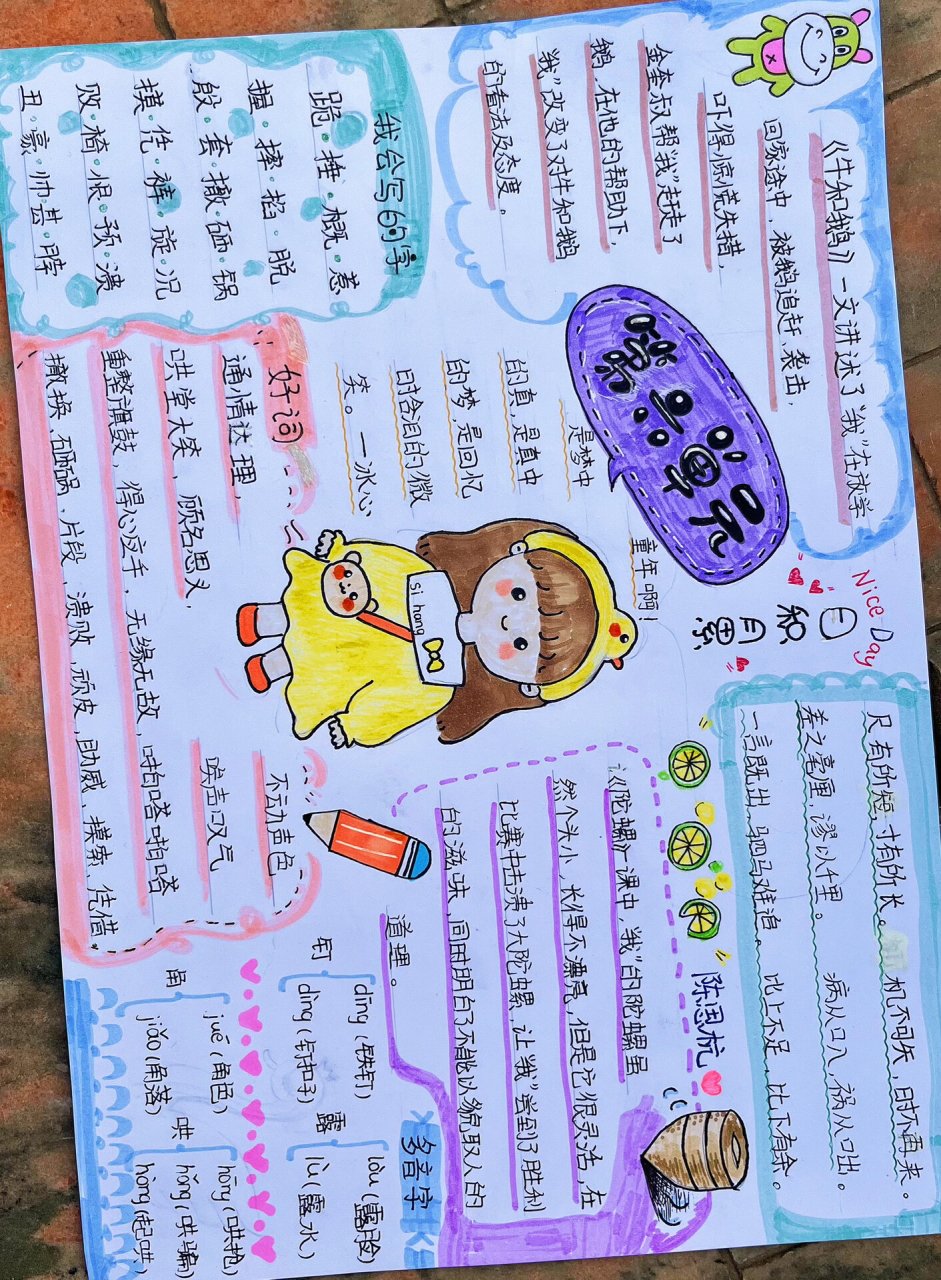 《牛和鹅》一文讲述了“我”在放学
回家途中，被鹅追赶、袭击，
吓得惊慌失措，
金奎叔帮“我”赶走了
鹅，在他的帮助下，
“我”改变了对牛和鹅
的看法及态度。
第六单元
Nice Day
日积月累
尺有所短，寸有所长。 机不可失，时不再来。
差之毫厘，谬以千里。 病从口入，祸从口出。
一言既出，驷马难追。 比上不足，比下有余。
陈思杭
童年啊！
是梦中
的真，是真中
的梦，是回忆
时含泪的微
笑。—冰心
si hang
《陀螺》一课中，“我”的陀螺虽
然个头小，长得不漂亮，但是它很灵活，在
比赛中击溃了大陀螺，让“我”尝到了胜利
的滋味，同时明白了不能以貌取人的
道理。
我会写的字
跪·捶·概·惹
握·摔·掐·脱
段·套·撤·砸·锅
摸·凭·裤·旋·况
败·椅·恨·预·溃
丑·豪·帅·甚·脖
好词
通情达理， 不动声色
哄堂大笑， 顾名思义， 唉声叹气
重整旗鼓，得心应手，无缘无故，啪嗒啪嗒
撤换，砸锅，片段，溃败，顽皮，助威，摸索，凭借
多音字
钉 dīng（铁钉） dìng（钉扣子）
露 lòu（露脸） lù（露水）
角 jué（角色） jiǎo（角落）
哄 hōng（哄抢） hǒng（哄骗） hòng（起哄）